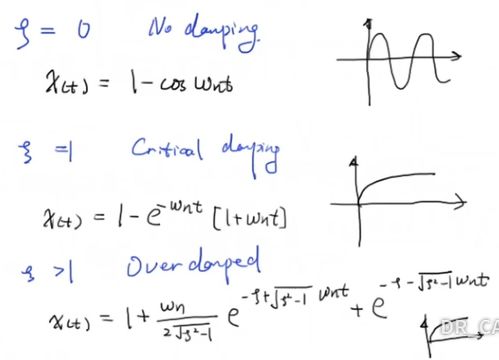 ξ = 0 No damping.
x(t) = 1 - cos ωnt
ξ =1 Critical damping
x(t) = 1 - e^{-ωnt} [1+ωnt]
ξ >1 Overdamped
x(t) = 1 + \frac{ωn}{2\sqrt{ξ²-1}} e^{-ξ+\sqrt{ξ²-1} ωnt} + e^{-ξ-\sqrt{ξ²-1} ωnt}
DR_CA